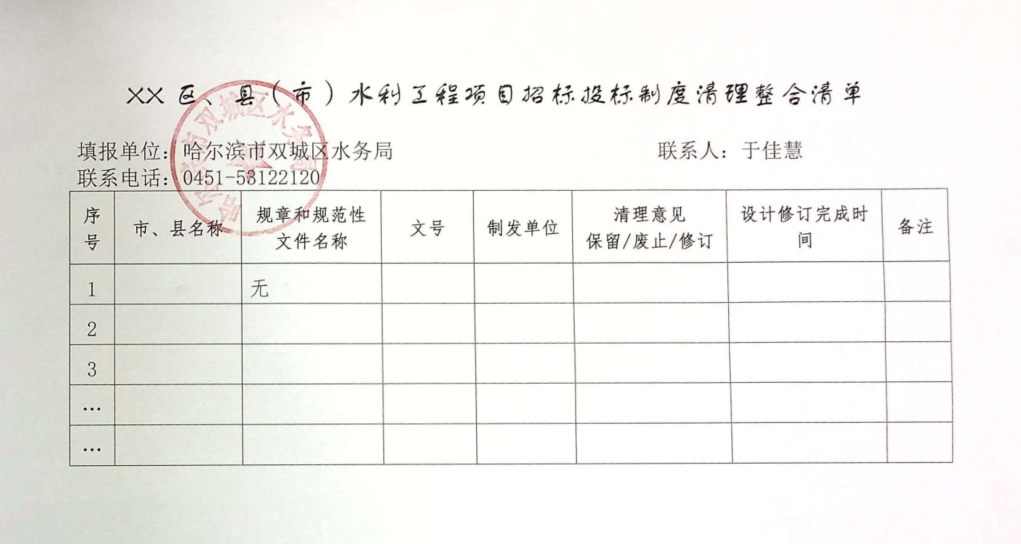 XX区、县(市)水利工程项目招标投标制度清理整合清单
填报单位：哈尔滨市双城区水务局 联系人：于佳慧
联系电话：0451-53122120
哈尔滨市双城区水务局
序号 市、县名称 规章和规范性文件名称 文号 制发单位 清理意见保留/废止/修订 设计修订完成时间 备注
1 无
2
3
…
…